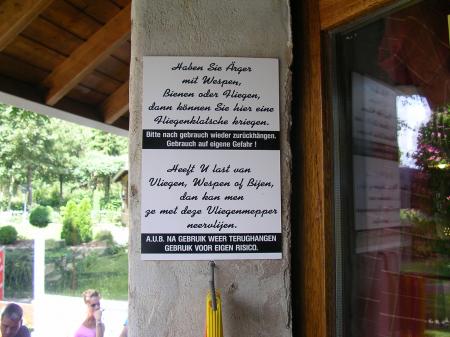 Haben Sie Ärger
mit Wespen,
Bienen oder Fliegen,
dann können Sie hier eine
Fliegenklatsche kriegen.
Bitte nach gebrauch wieder zurückhängen.
Gebrauch auf eigene Gefahr !
Heeft U last van
Vliegen, Wespen of Bijen,
dan kan men
ze met deze Vliegenmepper
neervlijen.
A.U.B. NA GEBRUIK WEER TERUGHANGEN
GEBRUIK VOOR EIGEN RISICO.